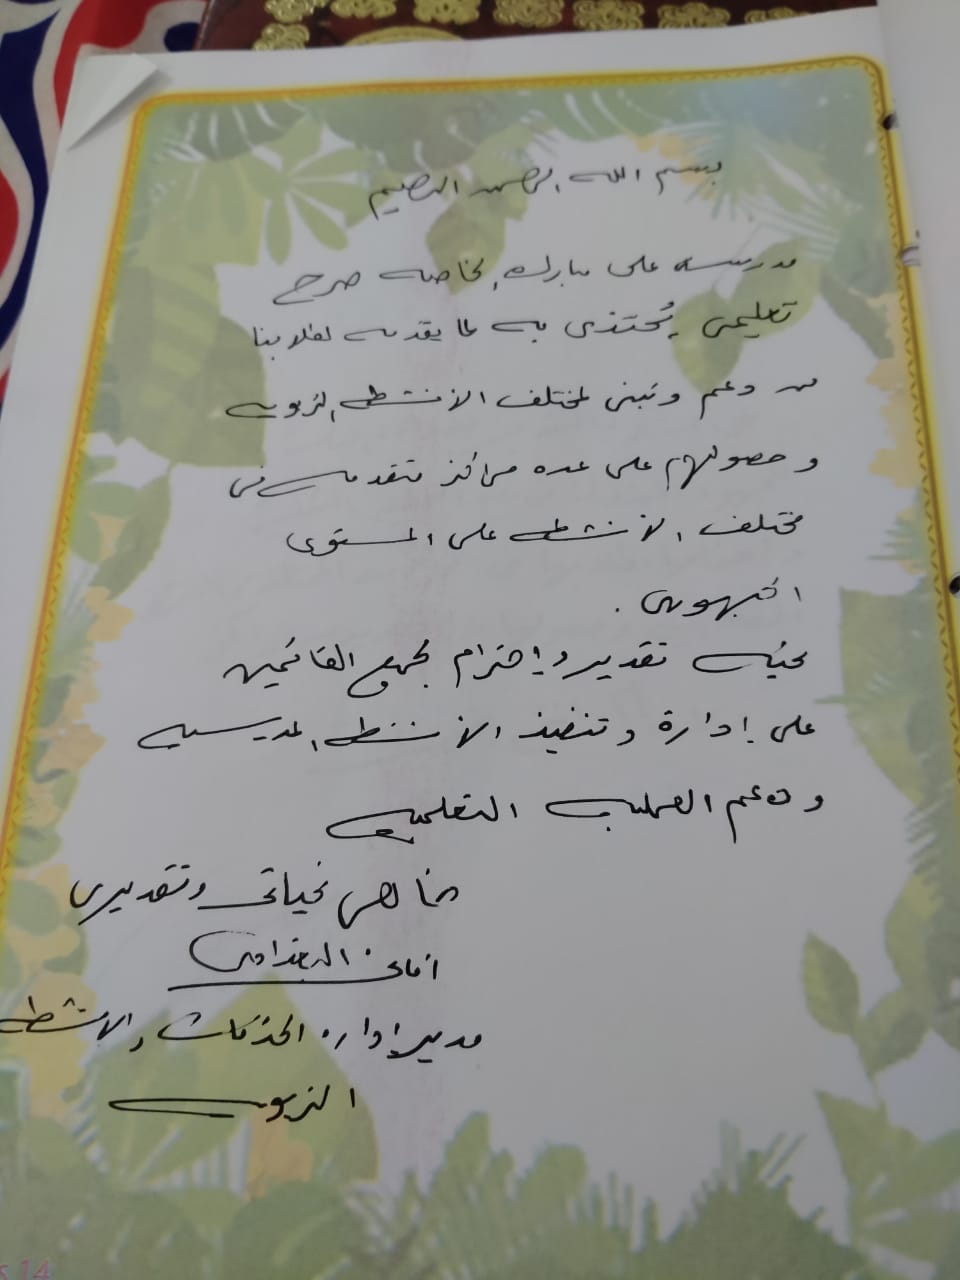 بسم الله الرحمن الرحيم
مدرسة على مبارك الخاصة صرح
تعليمى يُحتذى به لما يقدمه لطلابنا
من دعم وتبنى لمختلف الأنشطة التربوية
وحصولهم على عدة مراكز متقدمة فى
مختلف الأنشطة على المستوى
الجمهورى .
تحية تقدير وإحترام لجميع القائمين
على إدارة وتنفيذ الأنشطة المدرسية
ودعم العملية التعليمية
خالص تحياتى وتقديرى
أمانى
مدير إدارة الخدمات والأنشطة
التربوية
14